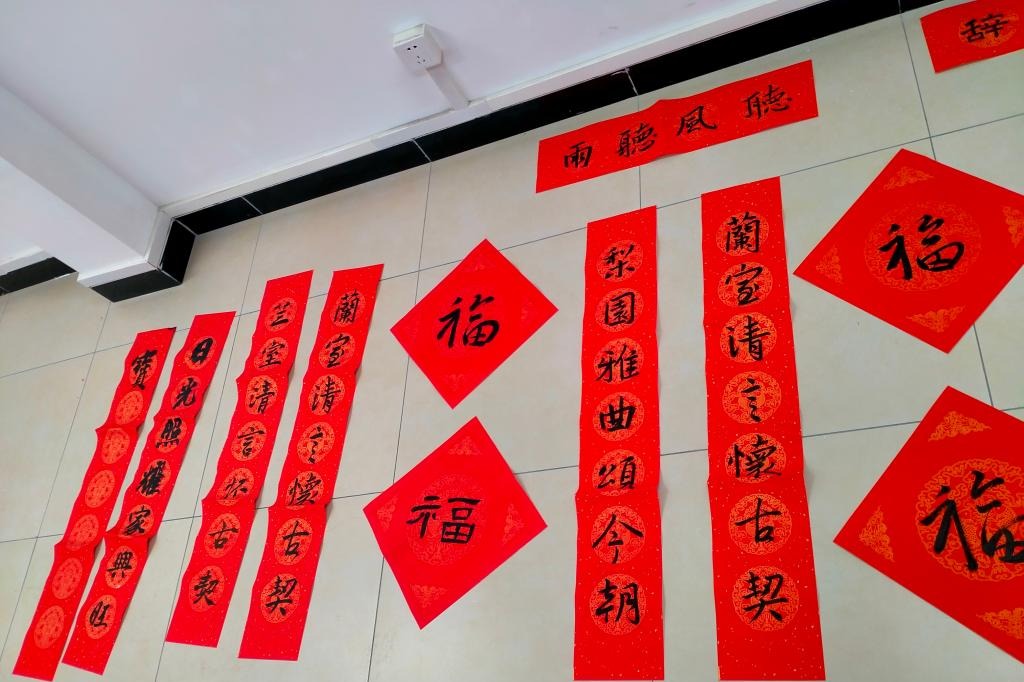 辞
聽風聽雨
福
福
蘭室清言懷古契
梨園雅曲頌今朝
福
福
蘭室清言懷古契
兰室清言怀古契
日光照耀家興旺
寶